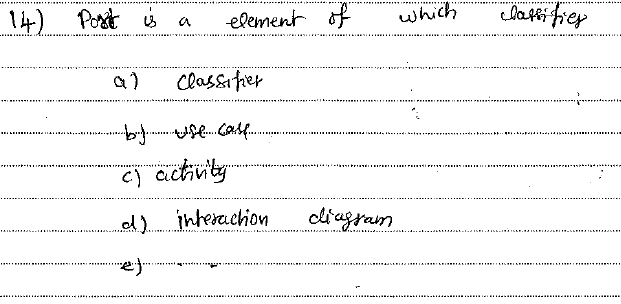 14) Post is a element of which classifier
a) classifier
b) use case
c) activity
d) interaction diagram
e) . -